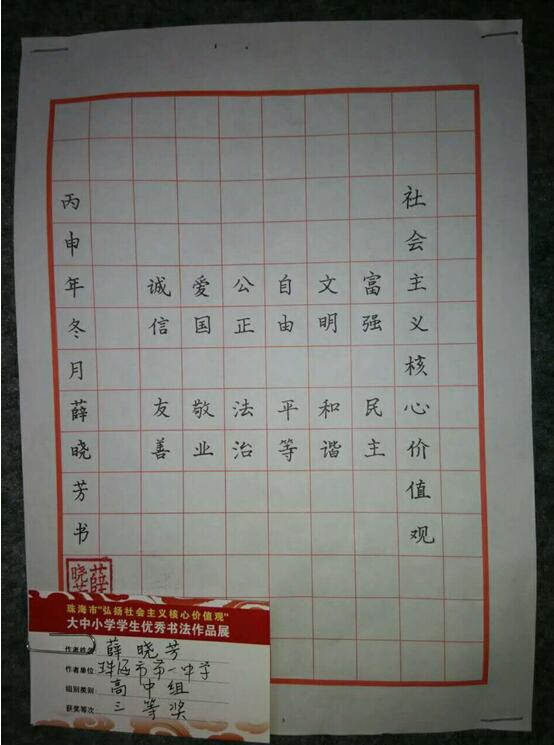 社会主义核心价值观
富强 民主
文明 和谐
自由 平等
公正 法治
爱国 敬业
诚信 友善
丙申年冬月薛晓芳书
薛晓芳
珠海市"弘扬社会主义核心价值观"
大中小学学生优秀书法作品展
作者姓名: 薛晓芳
作者单位: 珠海市第一中学
组别类别: 高中组
获奖等次: 三等奖